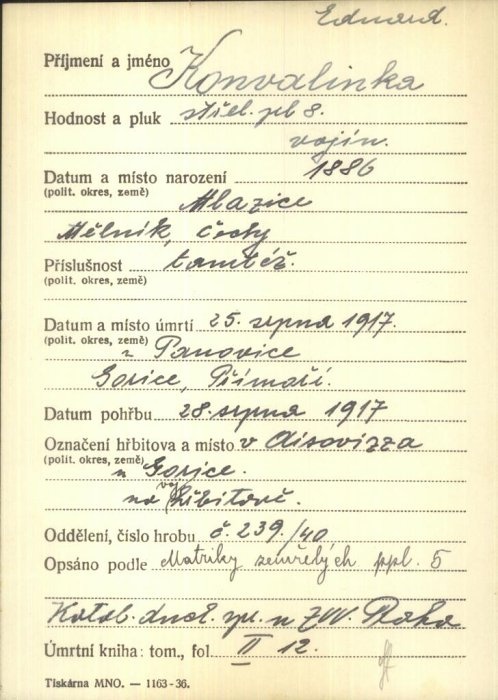 Eduard.
Příjmení a jméno Konvalinka
Hodnost a pluk střel. pl. 8.
vojín.
Datum a místo narození 1886
(polit. okres, země) Mlazice
Mělník, Čechy
Příslušnost tamtéž.
(polit. okres, země)
Datum a místo úmrtí 25. srpna 1917.
(polit. okres, země) Panovice
Gorice, Přímoří.
Datum pohřbu 28. srpna 1917
Označení hřbitova a místo v Aisovizza
(polit. okres, země) u Gorice.
na voj. hřbitově.
Oddělení, číslo hrobu č. 239./40
Opsáno podle Matriky zemřelých ppl. 5
Katol. duch. spr. u ZVV. Praha
Úmrtní kniha: tom., fol. II 12.
Tiskárna MNO. — 1163-36.